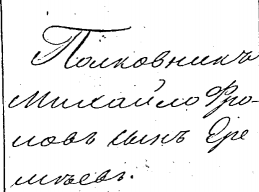 Полковникъ
Михайло Фро-
ловъ сынъ Ере
мѣевъ.